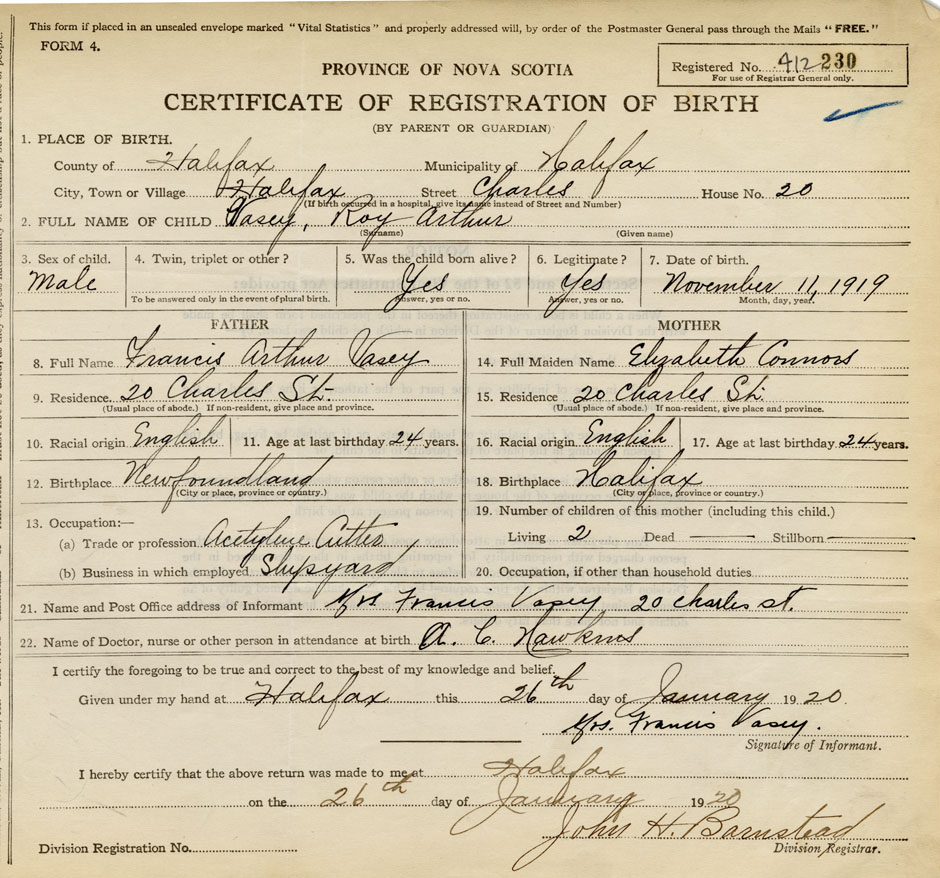 This form if placed in an unsealed envelope marked "Vital Statistics" and properly addressed will, by order of the Postmaster General pass through the Mails "FREE."
FORM 4.
Registered No. 412230
For use of Registrar General only.
PROVINCE OF NOVA SCOTIA
CERTIFICATE OF REGISTRATION OF BIRTH
(BY PARENT OR GUARDIAN)
1. PLACE OF BIRTH.
County of Halifax Municipality of Halifax
City, Town or Village Halifax Street Charles House No. 20
(If birth occurred in a hospital, give its name instead of Street and Number)
2. FULL NAME OF CHILD Vasey, Roy Arthur
(Surname) (Given name)
3. Sex of child. 4. Twin, triplet or other? 5. Was the child born alive? 6. Legitimate? 7. Date of birth.
Male Yes Yes November 11, 1919
To be answered only in the event of plural birth. Answer, yes or no. Answer, yes or no. Month, day, year.
FATHER MOTHER
8. Full Name Francis Arthur Vasey 14. Full Maiden Name Elizabeth Connors
9. Residence. 20 Charles St. 15. Residence 20 Charles St.
(Usual place of abode.) If non-resident, give place and province. (Usual place of abode.) If non-resident, give place and province.
10. Racial origin English 11. Age at last birthday 24 years. 16. Racial origin English 17. Age at last birthday 24 years.
12. Birthplace Newfoundland 18. Birthplace Halifax
(City or place, province or country.) (City or place, province or country.)
13. Occupation:— 19. Number of children of this mother (including this child.)
(a) Trade or profession Acetylene Cutter Living 2 Dead — Stillborn —
(b) Business in which employed Shipyard 20. Occupation, if other than household duties
21. Name and Post Office address of Informant Mrs Francis Vasey, 20 Charles st.
22. Name of Doctor, nurse or other person in attendance at birth A. C. Hawkins
I certify the foregoing to be true and correct to the best of my knowledge and belief.
Given under my hand at Halifax this 26th day of January 1920.
Mrs. Francis Vasey.
Signature of Informant.
I hereby certify that the above return was made to me at Halifax
on the 26th day of January 1920
John H. Barnstead
Division Registration No. Division Registrar.